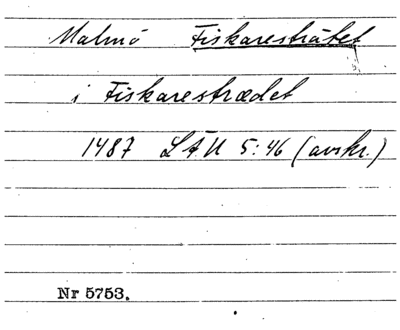 Malmö Fiskaresträtet
i Fiskarestrædet
1487 LÄU 5:46 (avskr.)
Nr 5753.